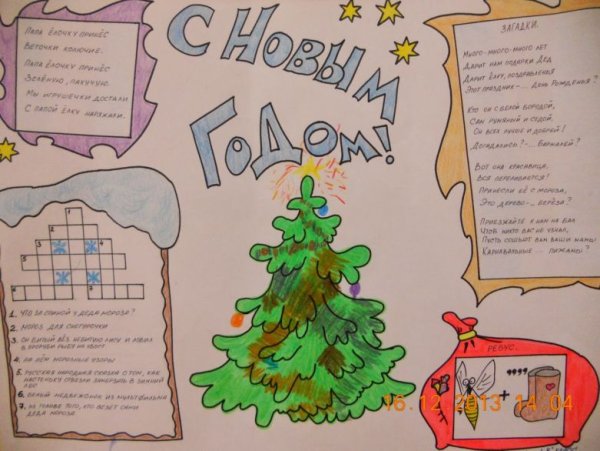 Папа ёлочку принёс
Веточки колючие.
Папа ёлочку принёс
Зелёную, пахучую.
Мы игрушечки достали
С папой ёлку наряжали.
С НОВЫМ
ГОДОМ!
ЗАГАДКИ.
Много-много-много лет
Дарит нам подарки Дед
Дарит ёлку, поздравленья
Этот праздник-... День Рожденья?
Кто он с белой бородой,
Сам румяный и седой,
Он всех лучше и добрей!
Догадались?-... Бармалей?
Вот она красавица,
Вся переливается!
Принесли её с мороза,
Это дерево-... берёза?
Приезжайте к нам на бал
Чтоб никто вас не узнал,
Пусть сошьют вам ваши мамы
Карнавальные ... пижамы?
1
2
3
4
5
6
1. Что за спиной у Деда Мороза?
2. Мороз для Снегурочки
3. Он битый вёз небитую лису и ловил
в проруби рыбу на хвост
4. На нём морозные узоры
5. Русская народная сказка о том, как
настеньку отвезли замерзать в зимний
лес
6. Белый медвежонок из мультфильма
7. На голове того, кто везёт сани
Деда Мороза
РЕБУС.
,,,,
+
16.12.2013 14:04